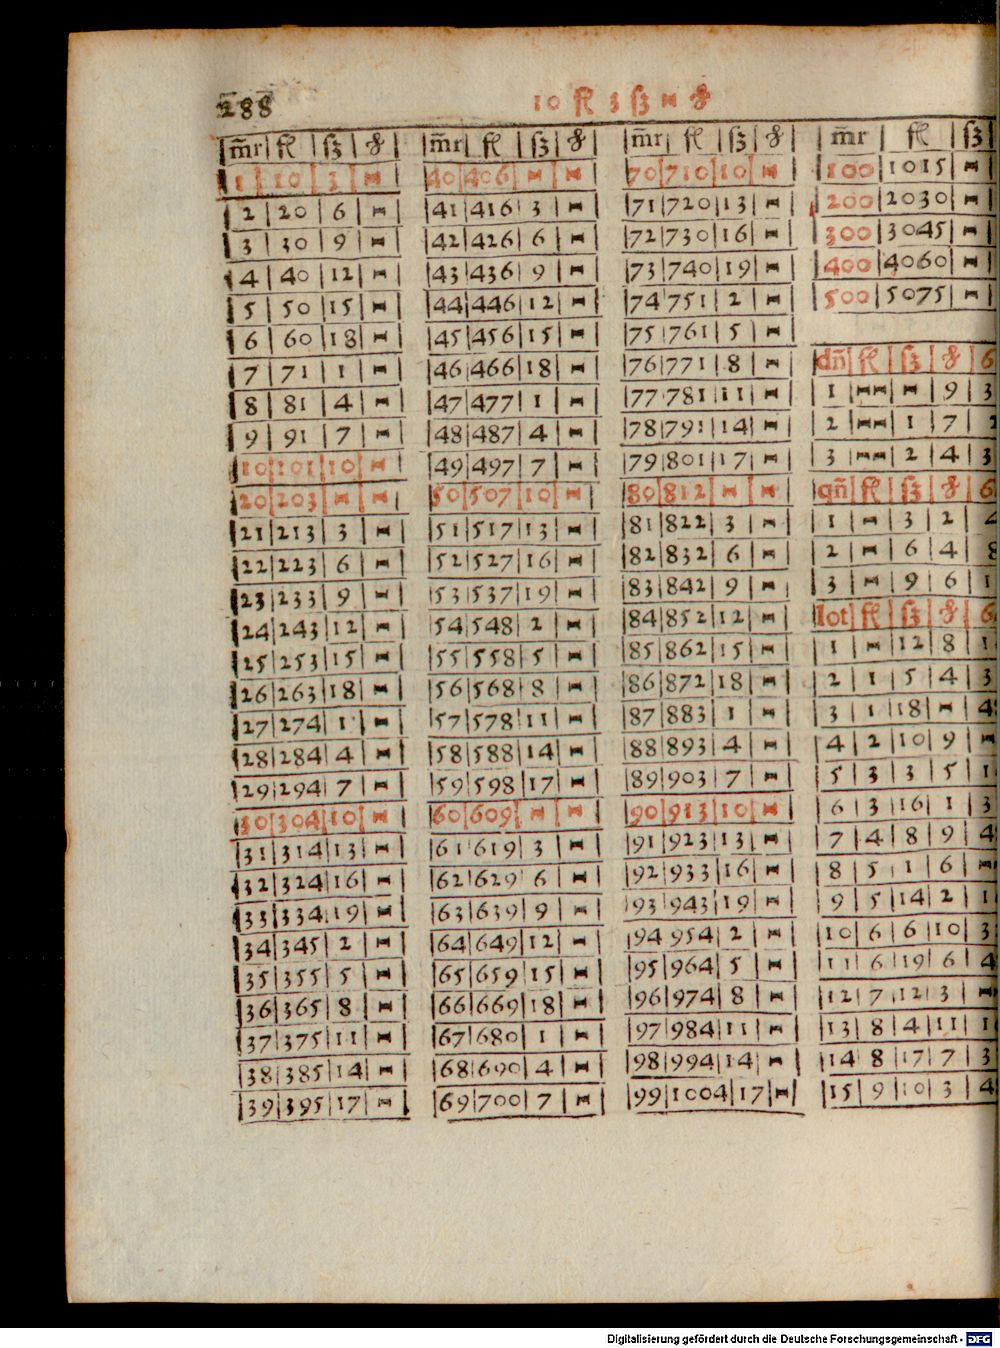 288
10 fl 3 ß - ₰
m̃r fl ß ₰
1 10 3 -
2 20 6 -
3 30 9 -
4 40 12 -
5 50 15 -
6 60 18 -
7 71 1 -
8 81 4 -
9 91 7 -
10 101 10 -
20 203 - -
21 213 3 -
22 223 6 -
23 233 9 -
24 243 12 -
25 253 15 -
26 263 18 -
27 274 1 -
28 284 4 -
29 294 7 -
30 304 10 -
31 314 13 -
32 324 16 -
33 334 19 -
34 345 2 -
35 355 5 -
36 365 8 -
37 375 11 -
38 385 14 -
39 395 17 -
m̃r fl ß ₰
40 406 - -
41 416 3 -
42 426 6 -
43 436 9 -
44 446 12 -
45 456 15 -
46 466 18 -
47 477 1 -
48 487 4 -
49 497 7 -
50 507 10 -
51 517 13 -
52 527 16 -
53 537 19 -
54 548 2 -
55 558 5 -
56 568 8 -
57 578 11 -
58 588 14 -
59 598 17 -
60 609 - -
61 619 3 -
62 629 6 -
63 639 9 -
64 649 12 -
65 659 15 -
66 669 18 -
67 680 1 -
68 690 4 -
69 700 7 -
m̃r fl ß ₰
70 710 10 -
71 720 13 -
72 730 16 -
73 740 19 -
74 751 2 -
75 761 5 -
76 771 8 -
77 781 11 -
78 791 14 -
79 801 17 -
80 812 - -
81 822 3 -
82 832 6 -
83 842 9 -
84 852 12 -
85 862 15 -
86 872 18 -
87 883 1 -
88 893 4 -
89 903 7 -
90 913 10 -
91 923 13 -
92 933 16 -
93 943 19 -
94 954 2 -
95 964 5 -
96 974 8 -
97 984 11 -
98 994 14 -
99 1004 17 -
m̃r fl ß
100 1015 -
200 2030 -
300 3045 -
400 4060 -
500 5075 -
dñ fl ß ₰ 6
1 -- - 9 3
2 -- 1 7 2
3 -- 2 4 3
qñ fl ß ₰ 6
1 - 3 2 4
2 - 6 4 8
3 - 9 6 1
lot fl ß ₰ 6
1 - 12 8 1
2 1 5 4 3
3 1 18 - 4
4 2 10 9 -
5 3 3 5 1
6 3 16 1 3
7 4 8 9 4
8 5 1 6 -
9 5 14 2 1
10 6 6 10 3
11 6 19 6 4
12 7 12 3 -
13 8 4 11 1
14 8 17 7 3
15 9 10 3 4
Digitalisierung gefördert durch die Deutsche Forschungsgemeinschaft - DFG